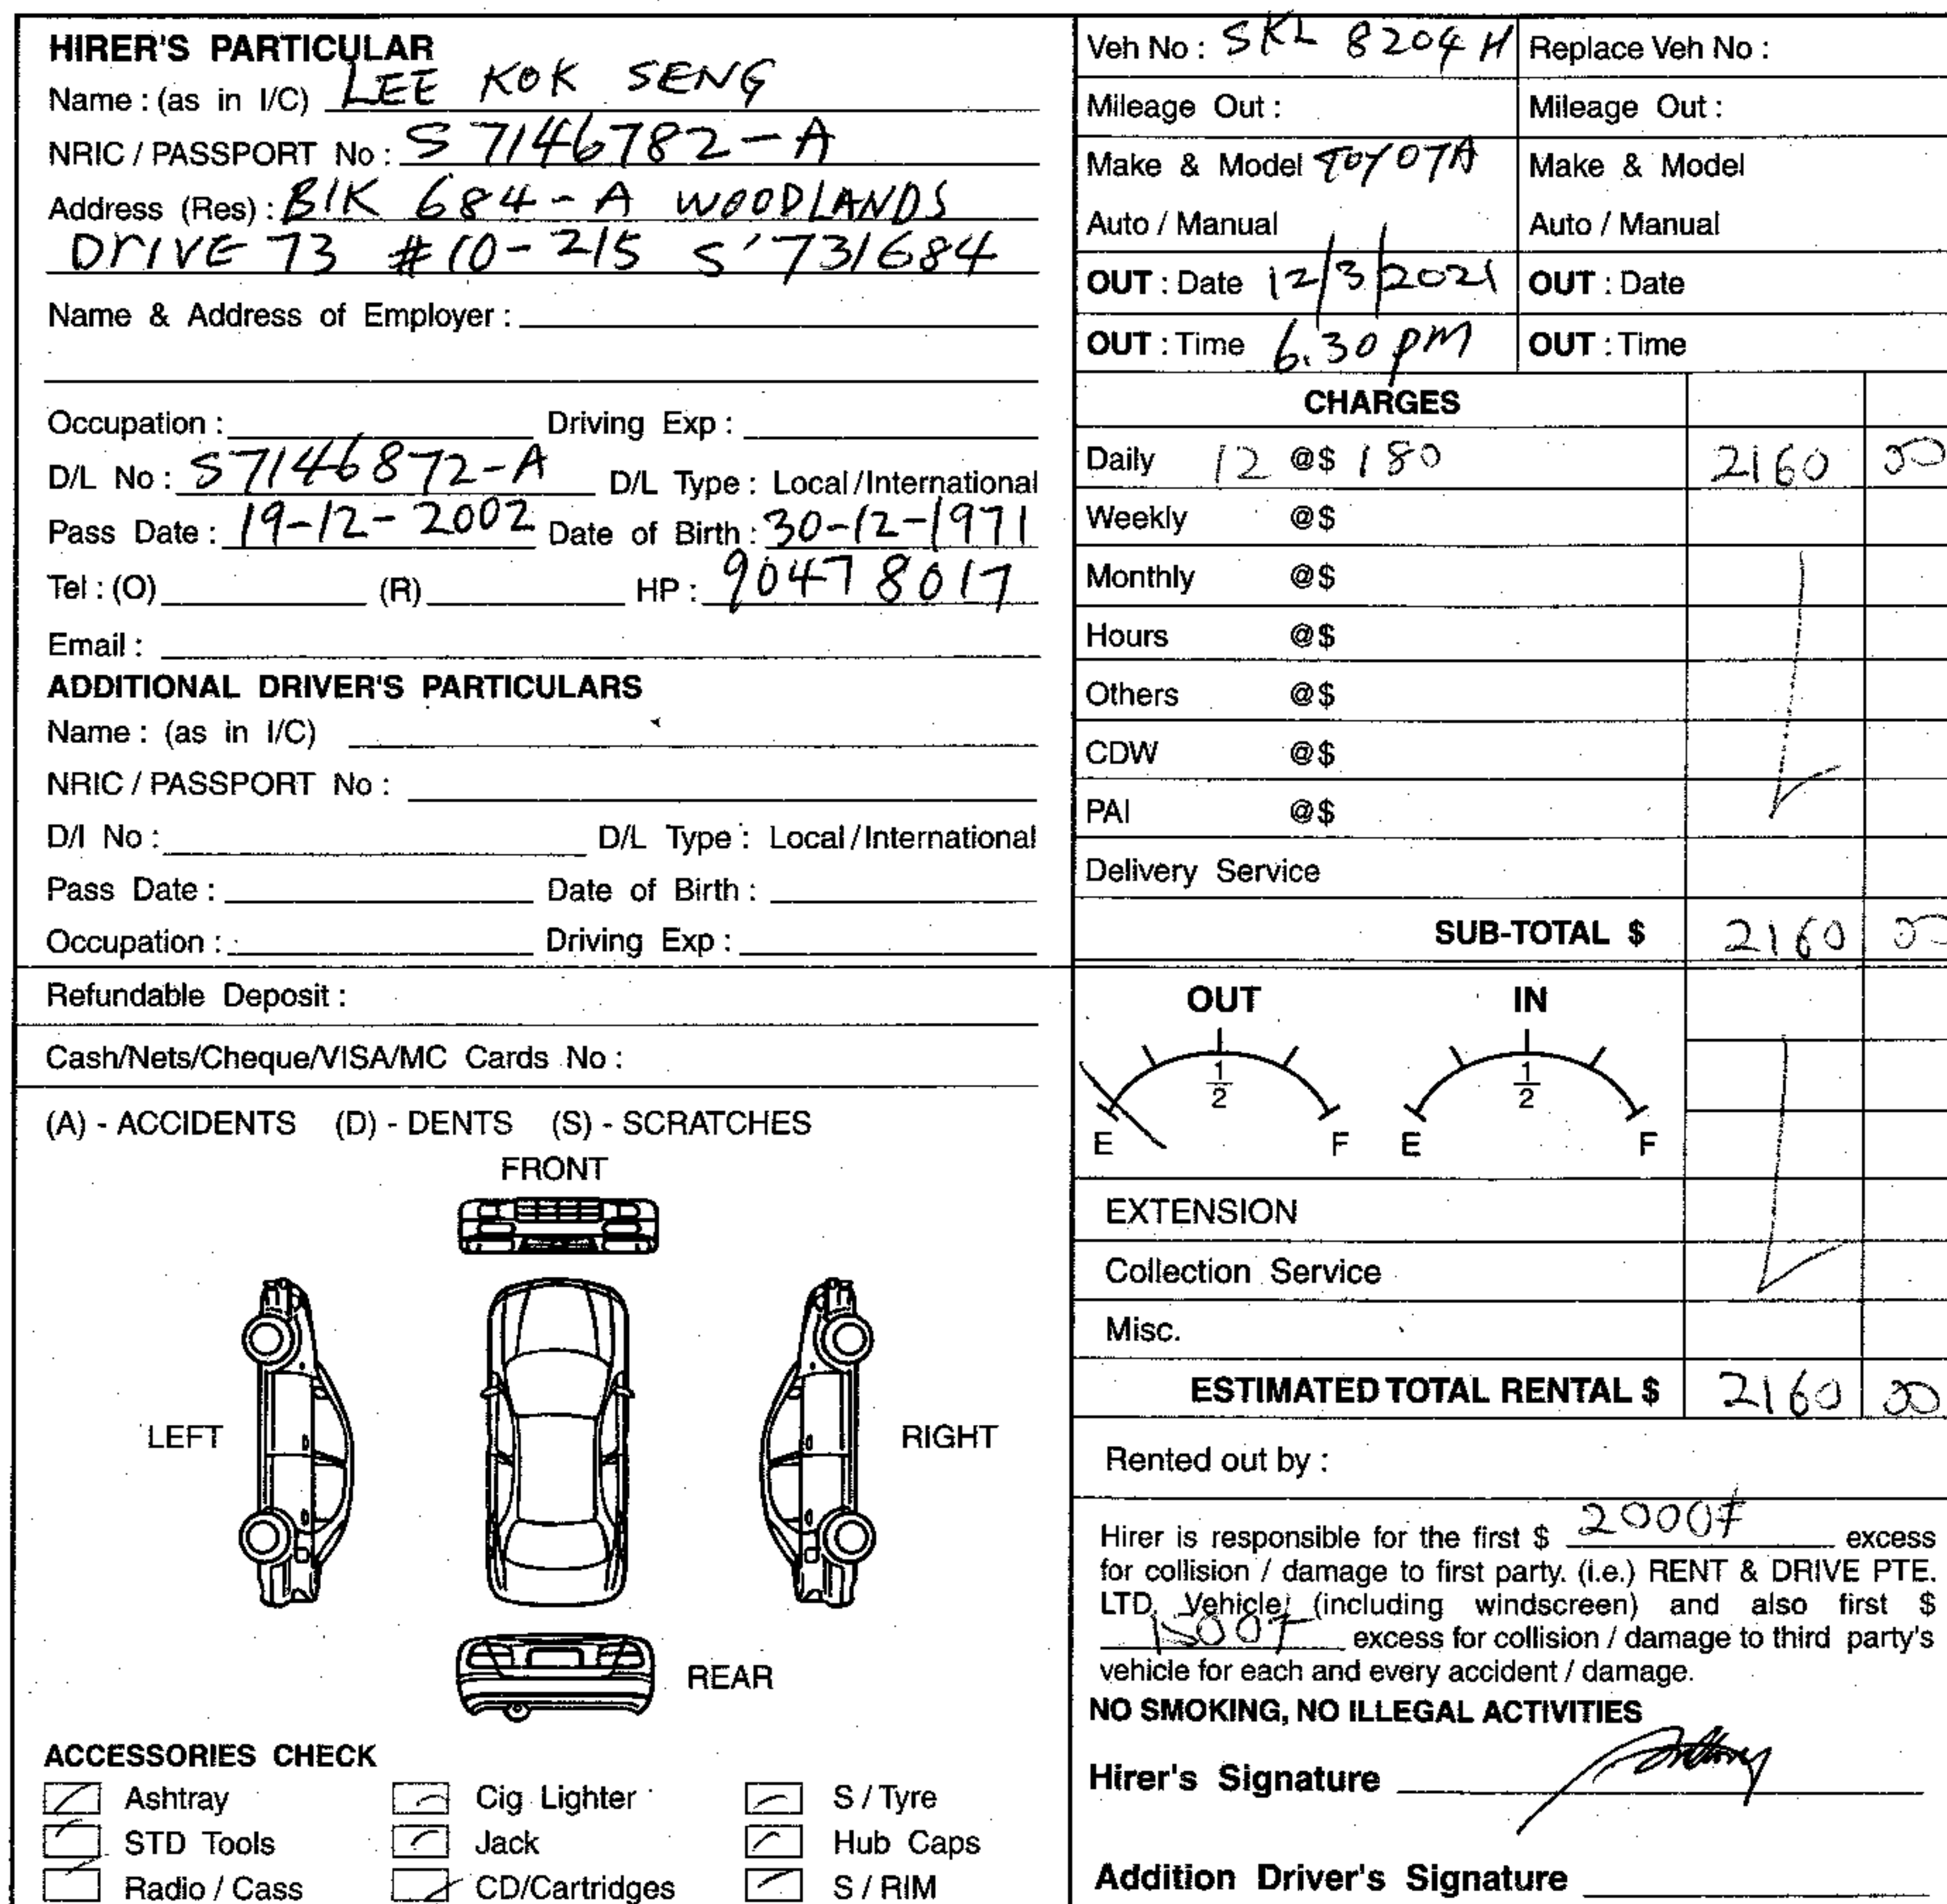 HIRER'S PARTICULAR
Name : (as in I/C) LEE KOK SENG
NRIC / PASSPORT No : S 7146782-A
Address (Res) : BlK 684-A WOODLANDS
DrIVE 73 #10-215 S'731684
Name & Address of Employer :
Occupation : Driving Exp :
D/L No : S7146872-A D/L Type : Local/International
Pass Date : 19-12-2002 Date of Birth : 30-12-1971
Tel : (O) (R) HP : 90478017
Email :
ADDITIONAL DRIVER'S PARTICULARS
Name : (as in I/C)
NRIC / PASSPORT No :
D/I No : D/L Type : Local/International
Pass Date : Date of Birth :
Occupation : Driving Exp :
Refundable Deposit :
Cash/Nets/Cheque/VISA/MC Cards No :
(A) - ACCIDENTS (D) - DENTS (S) - SCRATCHES
FRONT
LEFT RIGHT
REAR
ACCESSORIES CHECK
Ashtray Cig Lighter S / Tyre
STD Tools Jack Hub Caps
Radio / Cass CD/Cartridges S / RIM
Veh No : SKL 8204 H Replace Veh No :
Mileage Out : Mileage Out :
Make & Model TOYOTA Make & Model
Auto / Manual Auto / Manual
OUT : Date 12/3/2021 OUT : Date
OUT : Time 6.30 pM OUT : Time
CHARGES
Daily 12 @$ 180 2160 00
Weekly @$
Monthly @$
Hours @$
Others @$
CDW @$
PAI @$
Delivery Service
SUB-TOTAL $ 2160 00
OUT IN
1/2 1/2
E F E F
EXTENSION
Collection Service
Misc.
ESTIMATED TOTAL RENTAL $ 2160 00
Rented out by :
Hirer is responsible for the first $ 2000 excess
for collision / damage to first party. (i.e.) RENT & DRIVE PTE.
LTD. Vehicle (including windscreen) and also first $
1500 excess for collision / damage to third party's
vehicle for each and every accident / damage.
NO SMOKING, NO ILLEGAL ACTIVITIES
Hirer's Signature
Addition Driver's Signature